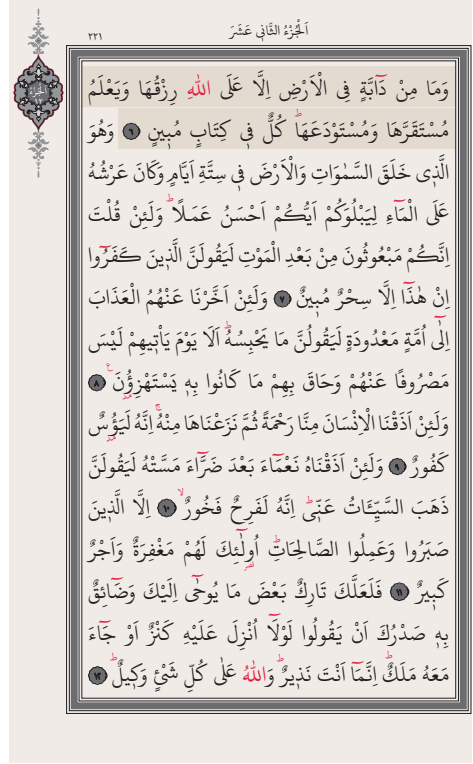 اَلْجُزْءُ الثَّانِي عَشَرَ
٢٢١
اَلْجُزْءُ
١٢
وَمَا مِنْ دَٓابَّةٍ فِي الْاَرْضِ اِلَّا عَلَى اللّٰهِ رِزْقُهَا وَيَعْلَمُ
مُسْتَقَرَّهَا وَمُسْتَوْدَعَهَاۜ كُلٌّ ف۪ي كِتَابٍ مُب۪ينٍ ﴿٦﴾ وَهُوَ
الَّذ۪ي خَلَقَ السَّمٰوَاتِ وَالْاَرْضَ ف۪ي سِتَّةِ اَيَّامٍ وَكَانَ عَرْشُهُ
عَلَى الْمَٓاءِ لِيَبْلُوَكُمْ اَيُّكُمْ اَحْسَنُ عَمَلًاۜ وَلَئِنْ قُلْتَ
اِنَّكُمْ مَبْعُوثُونَ مِنْ بَعْدِ الْمَوْتِ لَيَقُولَنَّ الَّذ۪ينَ كَفَرُٓوا
اِنْ هٰذَٓا اِلَّا سِحْرٌ مُب۪ينٌ ﴿٧﴾ وَلَئِنْ اَخَّرْنَا عَنْهُمُ الْعَذَابَ
اِلٰٓى اُمَّةٍ مَعْدُودَةٍ لَيَقُولُنَّ مَا يَحْبِسُهُۜ اَلَا يَوْمَ يَأْت۪يهِمْ لَيْسَ
مَصْرُوفًا عَنْهُمْ وَحَاقَ بِهِمْ مَا كَانُوا بِه۪ يَسْتَهْزِؤُ۫نَ۟ ﴿٨﴾
وَلَئِنْ اَذَقْنَا الْاِنْسَانَ مِنَّا رَحْمَةً ثُمَّ نَزَعْنَاهَا مِنْهُۚ اِنَّهُ لَيَؤُ۫سٌ
كَفُورٌ ﴿٩﴾ وَلَئِنْ اَذَقْنَاهُ نَعْمَٓاءَ بَعْدَ ضَرَّٓاءَ مَسَّتْهُ لَيَقُولَنَّ
ذَهَبَ السَّيِّـَٔاتُ عَنّ۪يۜ اِنَّهُ لَفَرِحٌ فَخُورٌۙ ﴿١٠﴾ اِلَّا الَّذ۪ينَ
صَبَرُوا وَعَمِلُوا الصَّالِحَاتِۜ اُو۬لٰٓئِكَ لَهُمْ مَغْفِرَةٌ وَاَجْرٌ
كَب۪يرٌ ﴿١١﴾ فَلَعَلَّكَ تَارِكٌ بَعْضَ مَا يُوحٰٓى اِلَيْكَ وَضَٓائِقٌ
بِه۪ صَدْرُكَ اَنْ يَقُولُوا لَوْلَٓا اُنْزِلَ عَلَيْهِ كَنْزٌ اَوْ جَٓاءَ
مَعَهُ مَلَكٌۜ اِنَّمَٓا اَنْتَ نَذ۪يرٌۜ وَاللّٰهُ عَلٰى كُلِّ شَيْءٍ وَك۪يلٌۜ ﴿١٢﴾